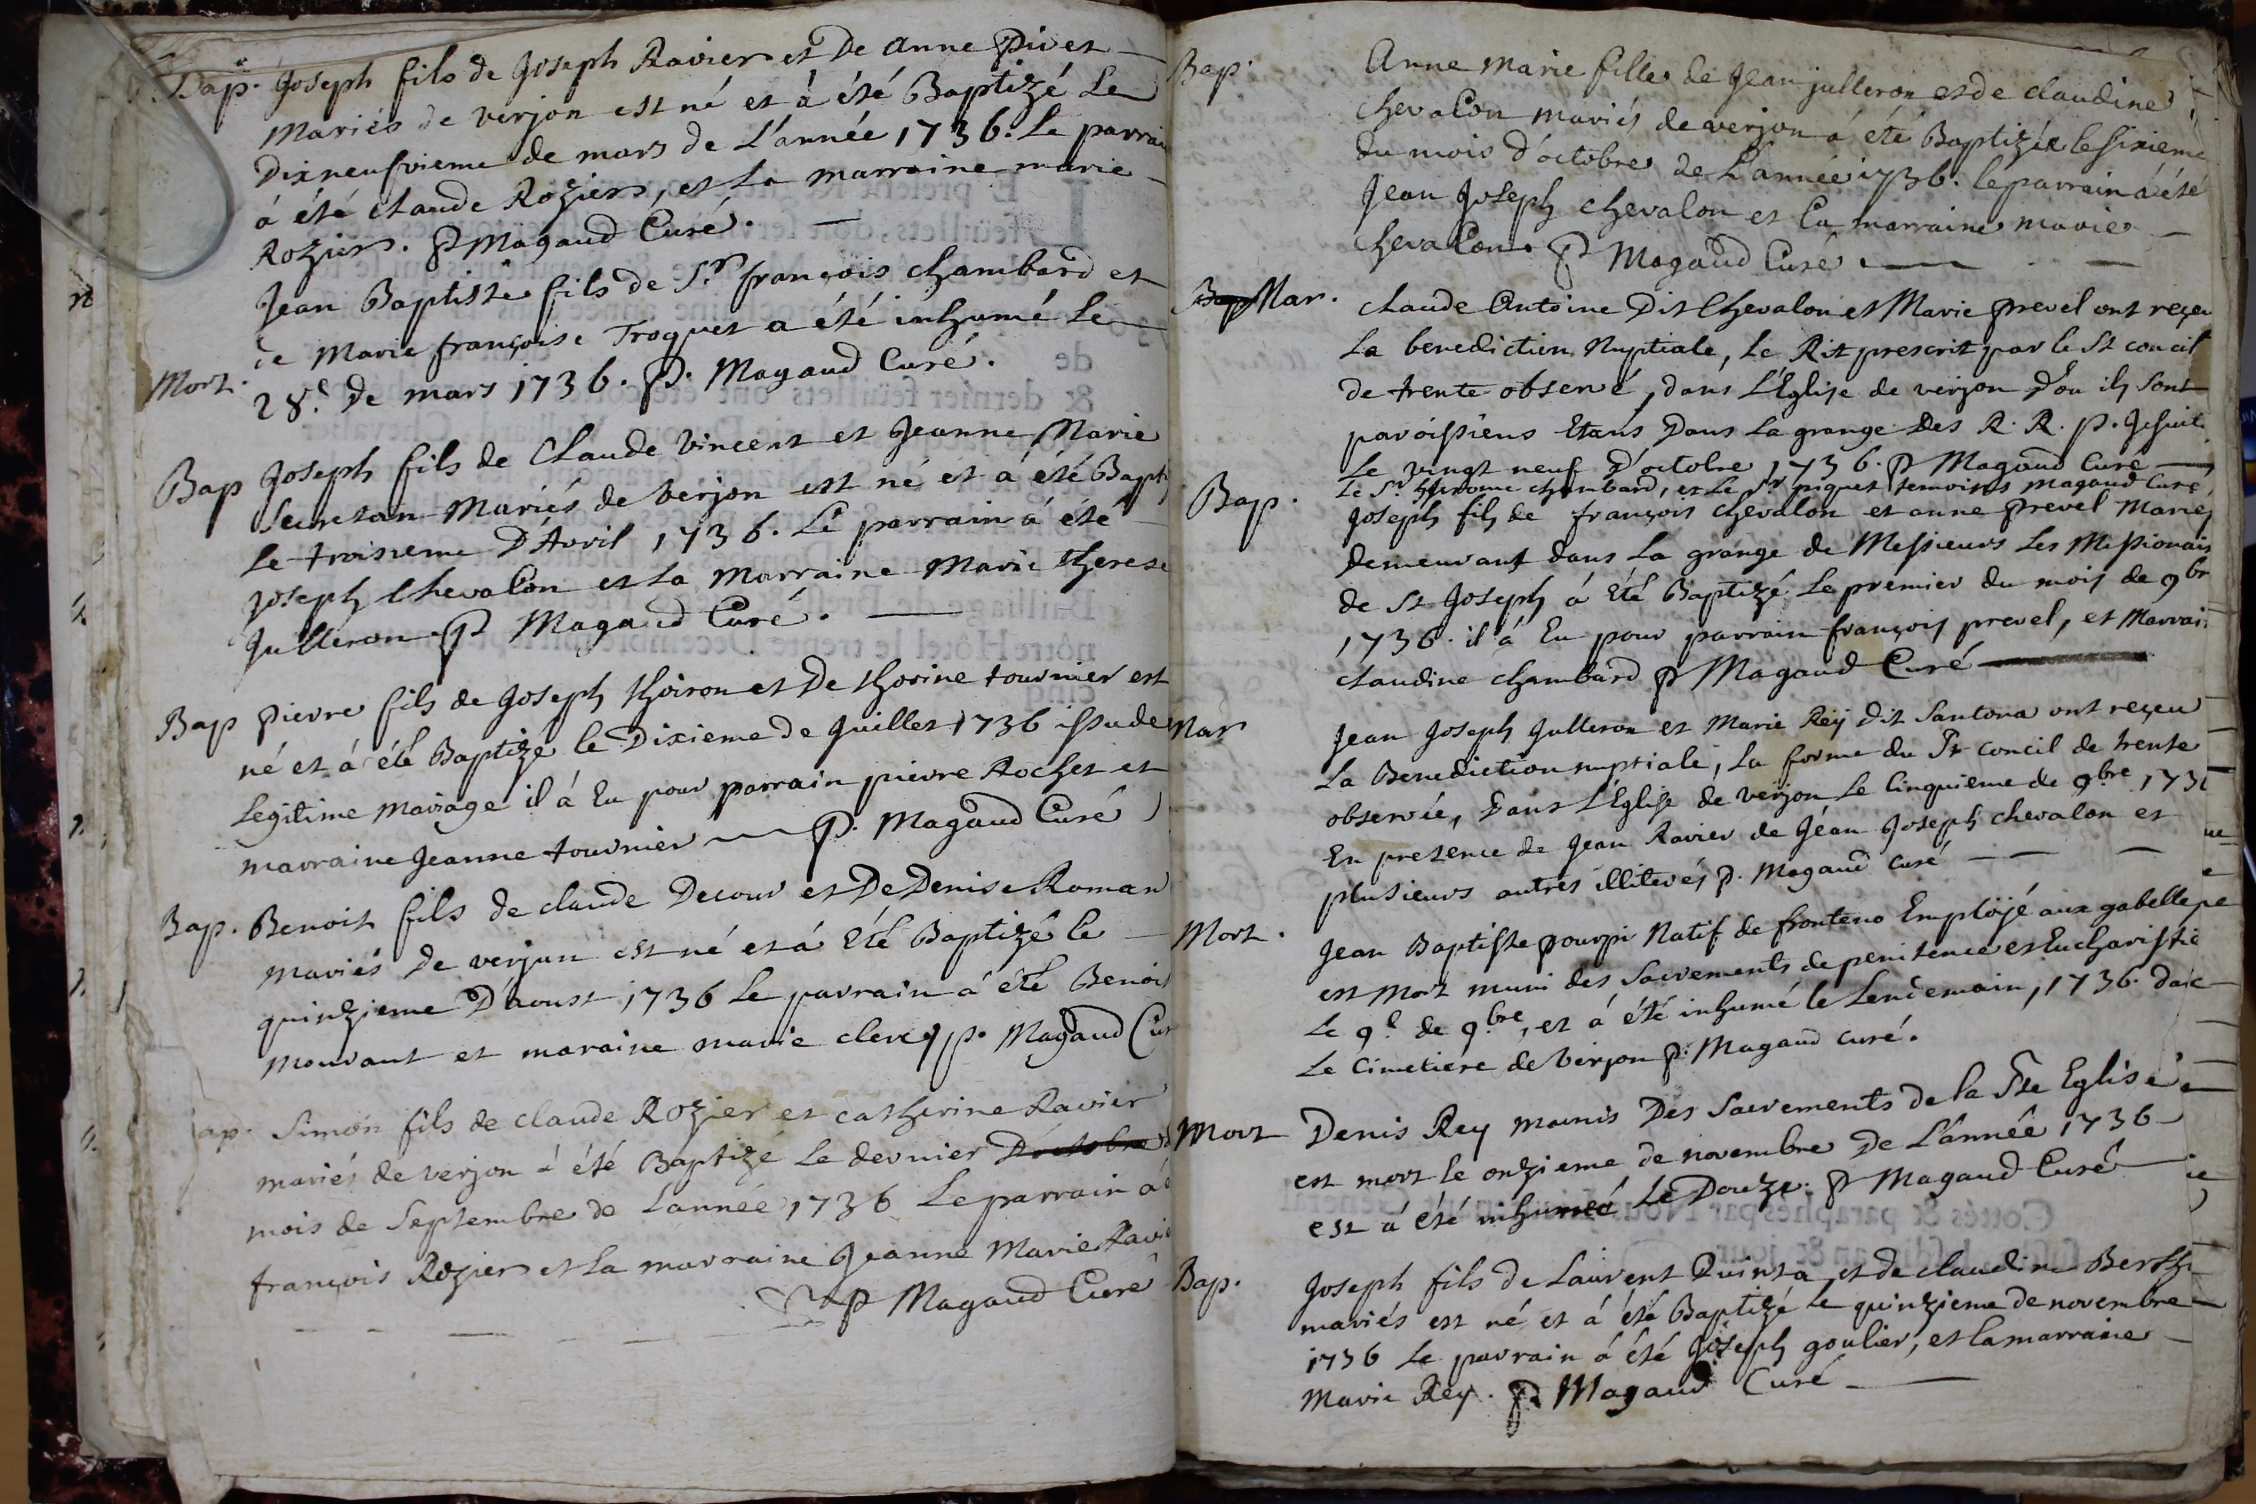 Bap. Joseph fils de Joseph Ravier et De Anne Pivet
Mariés de verjon est né et á été Baptizé Le
Dixneufvieme de mars de L'année 1736. Le parrain
á été Claude Rozier, et La marraine marie
Rozier. P Magaud Curé.
Jean Baptiste fils de Sr. françois Chambard et
de Marie françoise Troquet a été inhumé Le
Mort. 28e. De mars 1736. P. Magaud Curé.
Bap Joseph fils de Claude Vincent et Jeanne Marie
Secretan Mariés de Verjon est né et á été Bapti
Le troisieme D'Avril 1736. Le parrain á été
Joseph Chevalon et La Marraine Marie therese
Julleron P Magaud Curé.
Bap Pierre fils de Joseph thoiron et De thorine tournier est
né et á été Baptizé le Dixieme de Juillet 1736 issu de
Legitime Mariage il á Eu pour parrain pierre Rochet et
marraine Jeanne tournier P. Magaud Curé
Bap. Benoit fils de claude Decour et De Denise Roman
mariés De verjon est né et á Eté Baptizé le
quinzieme D'aoust 1736 Le parrain á été Benoit
Mouvant et maraine marie clerc P. Magaud Cur
ap. Simon fils de claude Rozier et catherine Ravier
mariés de verjon á été Baptizé Le dernier D'octobre
mois de Septembre de L'année 1736 Le parrain á é
françois Rozier et La marraine Jeanne Marie Ravie
P Magaud Curé
Bap. Anne Marie fille de Jean julleron et de claudine
Chevalon mariés de verjon á été Baptizée le sixieme
du mois d'octobre de L'année 1736. le parrain á été
Jean Joseph Chevalon et La marraine marie
Chevalon. P Magaud Curé.
Bap Mar. Claude Antoine Dit Chevalon et Marie prevel ont reçeu
La benediction Nuptiale, Le Rit prescrit par le St concil
de trente observé, dans L'Eglise de verjon D'ou ils sont
paroissiens Etans Dans La grange Des R. R. P. Jesuit.
Le vingt neuf D'octobre 1736. P Magaud Curé
Le Sr. hierome chambard, et Le Sr. piquet temoins Magaud Curé
Bap. Joseph fils de françois Chevalon et anne prevel Mariés
demeurant dans La grange de Messieurs Les Missionais
de St Joseph á Eté Baptizé Le premier du mois de 9br
1736. il á Eu pour parrain françois prevel, et Marrai
claudine chambard P Magaud Curé
Mar Jean Joseph Julleron et Marie Reÿ dit Santona ont reçeu
La Benediction nuptiale, La forme du St concil de trente
observée, Dans L'Eglise de verjon Le Cinquieme de 9bre 173
En presence de Jean Ravier de Jéan Joseph chevalon et
plusieurs autres illiterés P. Magaud curé
Mort. Jean Baptiste pourpi Natif de fronteno Emploÿé aux gabelle
est Mort muni des Sacrements de penitence et Eucharistie
Le 9e de 9bre, et á été inhumé le Lendemain, 1736. dans
Le Cimetiere de Verjon P. Magaud curé.
Mort Denis Rey munis Des Sacrements de la Ste Eglise
est mort le onzieme de novembre De L'année 1736
est á été inhumeé Le Douze. P Magaud Curé
Bap. Joseph fils de Laurent Quinta et de claudine Berthe
mariés est né et á été Baptizé Le quinzieme de novembre
1736 Le parrain á été Joseph goulier, et la marraine
Marie Rey. P. Magaud Curé